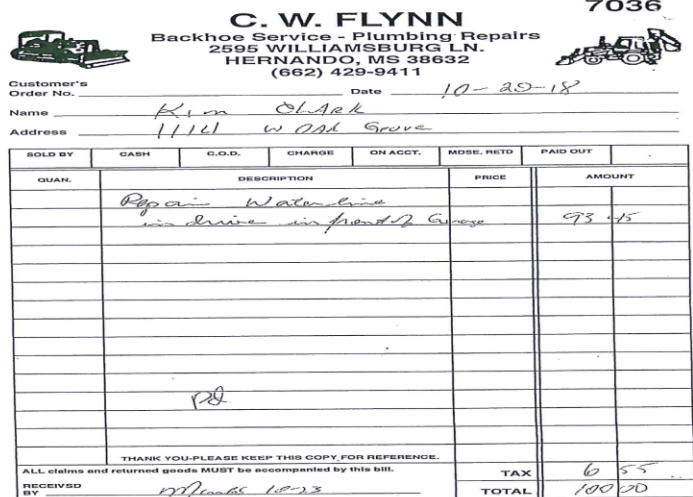 7036
C. W. FLYNN
Backhoe Service - Plumbing Repairs
2595 WILLIAMSBURG LN.
HERNANDO, MS 38632
(662) 429-9411
Customer's
Order No. Date 10-20-18
Name Kim Clark
Address 11141 W Oak Grove
SOLD BY CASH C.O.D. CHARGE ON ACCT. MDSE. RETD PAID OUT
QUAN. DESCRIPTION PRICE AMOUNT
Repair Waterline
in drive in front of Garage 93 45
Pd
THANK YOU-PLEASE KEEP THIS COPY FOR REFERENCE.
ALL claims and returned goods MUST be accompanied by this bill. TAX 6 55
RECEIVSD
BY 10-23 TOTAL 100 00